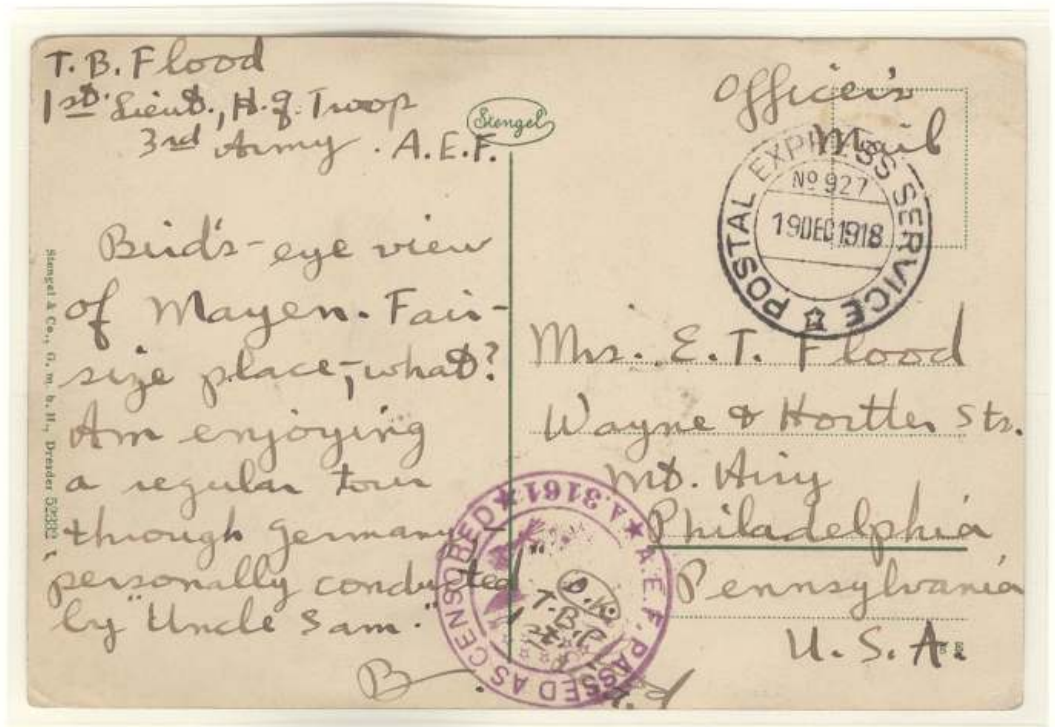 T. B. Flood
1st. Lieut., H.q. Troop
3rd Army. A.E.F.
Stengel
Officer's
Mail
POSTAL EXPRESS SERVICE
No 927
19 DEC 1918
Bird's-eye view
of Mayen. Fair-
size place, what?
Am enjoying
a regular tour
through Germany -
"personally conducted"
by "Uncle Sam."
B
Mrs. E. T. Flood
Wayne & Hortter Sts.
Mt. Airy
Philadelphia
Pennsylvania
U. S. A.
A.E.F. PASSED AS CENSORED
A.3161
O.K.
T.B.F.
Stengel & Co., G. m. b. H., Dresden 52332